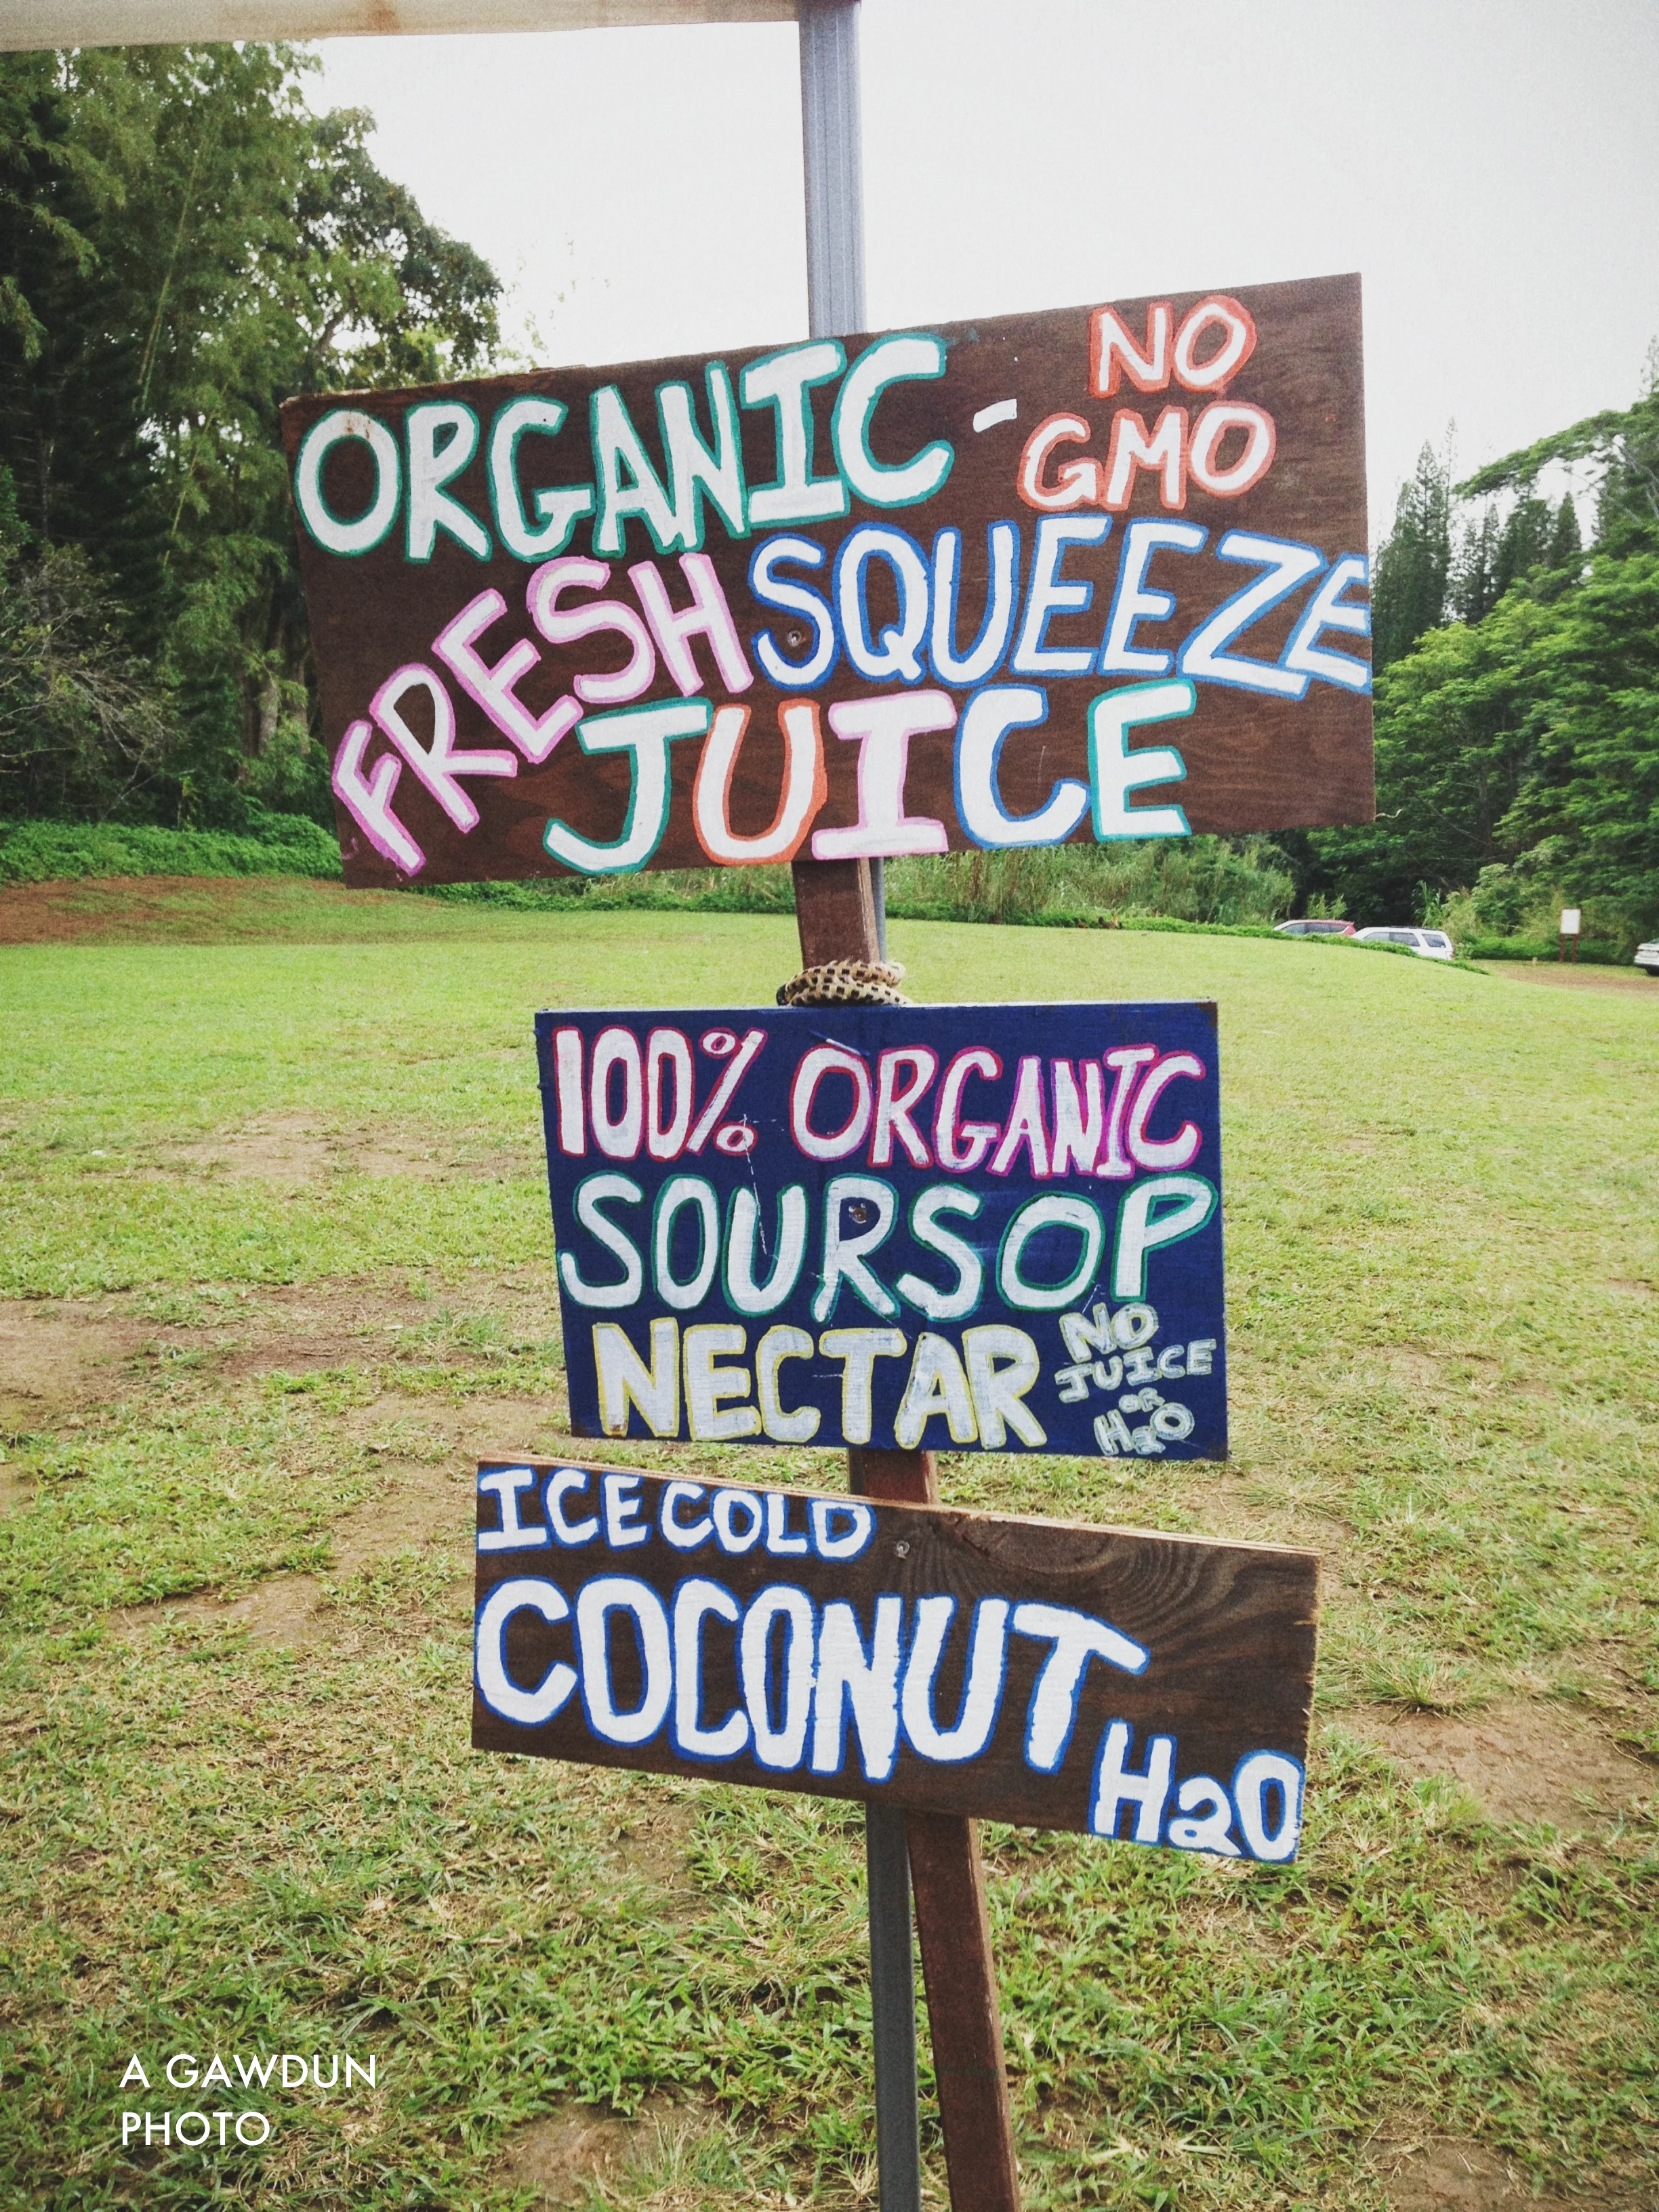 ORGANIC - NO
GMO
FRESH SQUEEZE
JUICE
100% ORGANIC
SOURSOP
NECTAR
NO
JUICE
OR
H2O
ICE COLD
COCONUT
H2O
A GAWDUN
PHOTO